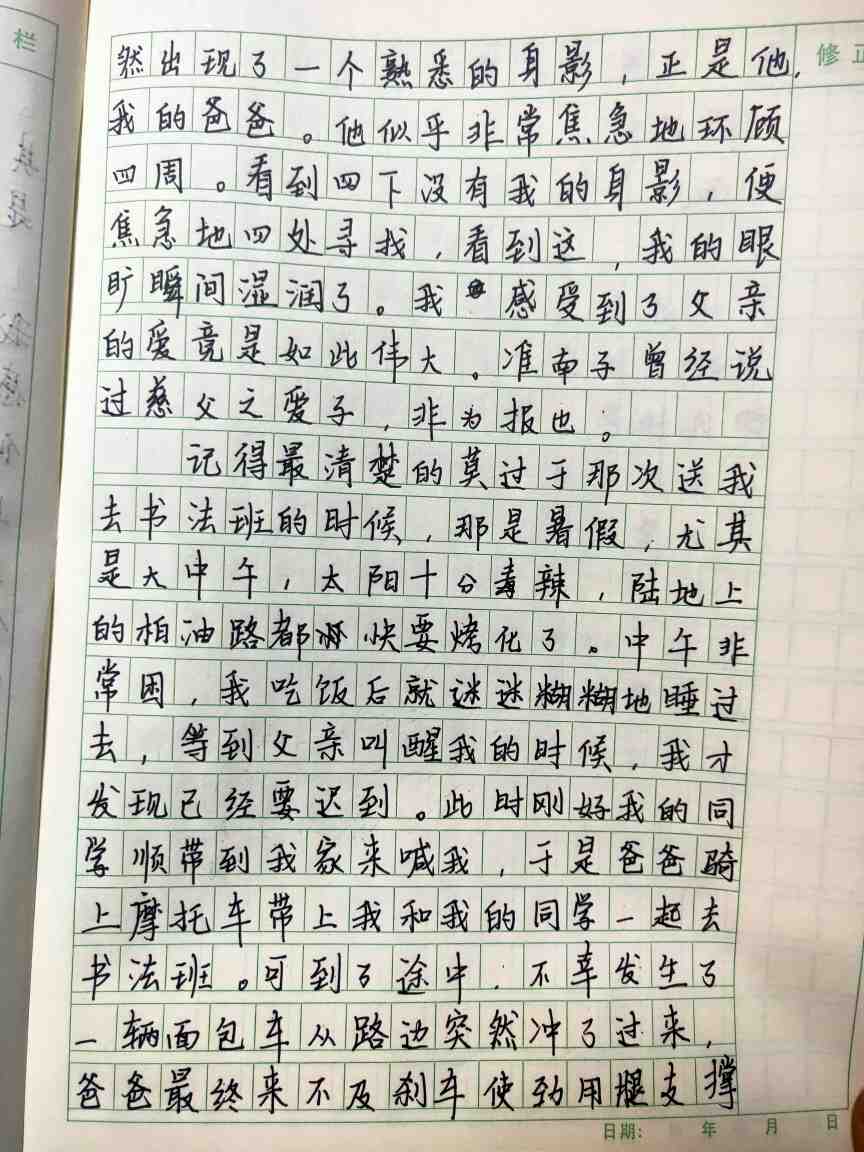 栏
修正
然出现了一个熟悉的身影，正是他，
我的爸爸。他似乎非常焦急地环顾
四周。看到四下没有我的身影，便
焦急地四处寻找，看到这，我的眼
眶瞬间湿润了。我感受到了父亲
的爱竟是如此伟大。准南子曾经说
过慈父之爱子，非为报也。
记得最清楚的莫过于那次送我
去书法班的时候，那是暑假，尤其
是大中午，太阳十分毒辣，陆地上
的柏油路都快要烤化了。中午非
常困，我吃饭后就迷迷糊糊地睡过
去，等到父亲叫醒我的时候，我才
发现已经要迟到。此时刚好我的同
学顺带到我家来喊我，于是爸爸骑
上摩托车带上我和我的同学一起去
书法班。可到了途中，不幸发生了
一辆面包车从路边突然冲了过来，
爸爸最终来不及刹车使劲用腿支撑
日期： 年 月 日